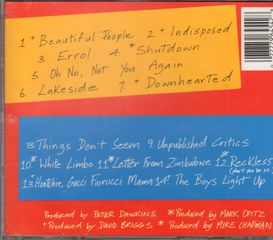 1+ Beautiful People 2+ Indisposed
3 Errol 4* Shutdown
5 Oh No, Not You Again
6 Lakeside 7+ Downhearted
8 Things Don't Seem 9 Unpublished Critics
10* White Limbo 11* Letter From Zimbabwe 12 Reckless
(Don't You Be So..)
13 Hootchie Gucci Fiorucci Mama 14 The Boys Light Up
Produced by PETER DAWKINS * Produced by MARK OPITZ
+ Produced by DAVID BRIGGS Produced by MIKE CHAPMAN